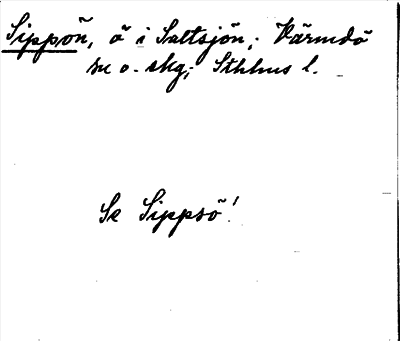 Sippön, ö i Saltsjön; Värmdö
sn o. skg; Sthlms l.
Se Sippsö!